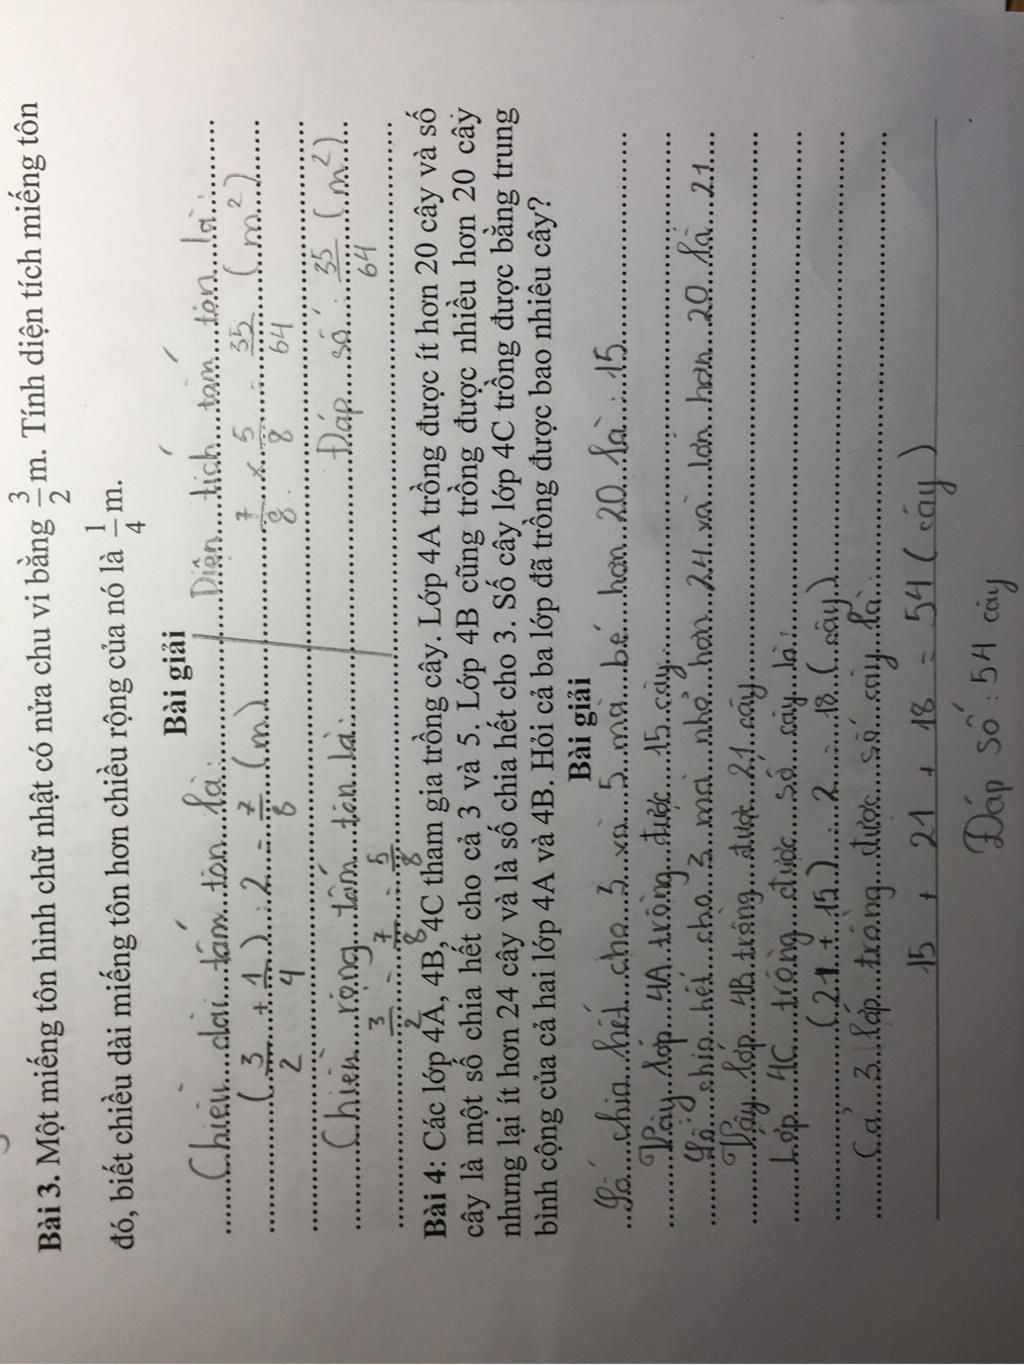 Bài 3. Một miếng tôn hình chữ nhật có nửa chu vi bằng 3/2 m. Tính diện tích miếng tôn
đó, biết chiều dài miếng tôn hơn chiều rộng của nó là 1/4 m.
Bài giải
Chiều dài tấm tôn là:
(3/2 + 1/4) : 2 = 7/8 (m)
Chiều rộng tấm tôn là:
3/2 - 7/8 = 5/8
Diện tích tấm tôn là:
7/8 x 5/8 = 35/64 (m²)
Đáp số: 35/64 (m²)
Bài 4: Các lớp 4A, 4B, 4C tham gia trồng cây. Lớp 4A trồng được ít hơn 20 cây và số
cây là một số chia hết cho cả 3 và 5. Lớp 4B cũng trồng được nhiều hơn 20 cây
nhưng lại ít hơn 24 cây và là số chia hết cho 3. Số cây lớp 4C trồng được bằng trung
bình cộng của cả hai lớp 4A và 4B. Hỏi cả ba lớp đã trồng được bao nhiêu cây?
Bài giải
Số chia hết cho 3 và 5 mà bé hơn 20 là: 15
Vậy lớp 4A trồng được 15 cây
Số chia hết cho 3 mà nhỏ hơn 24 và lớn hơn 20 là 21
Vậy lớp 4B trồng được 21 cây
Lớp 4C trồng được số cây là:
(21 + 15) : 2 = 18 (cây)
Cả 3 lớp trồng được số cây là:
15 + 21 + 18 = 54 (cây)
Đáp số: 54 cây